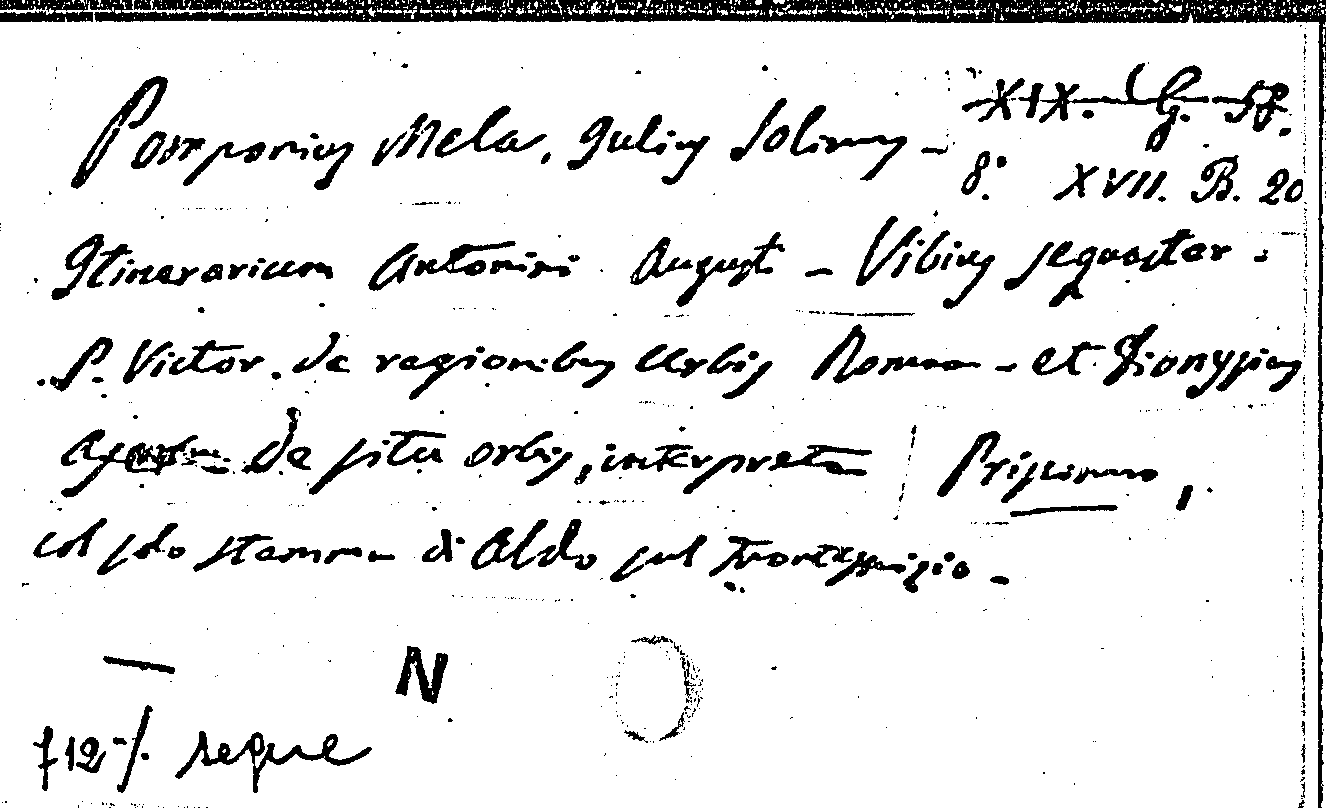 Pomponius Mela, Julius Solinus -
XIX. G. 58.
8.° XVII. B. 20
Itinerarium Antonini August. - Vibius Sequester -
P. Victor. de regionibus Urbis Romae - et Dionysius
de situ orbis, interprete Prisciano,
col solo stemma di Aldo sul frontespizio -
N
segue